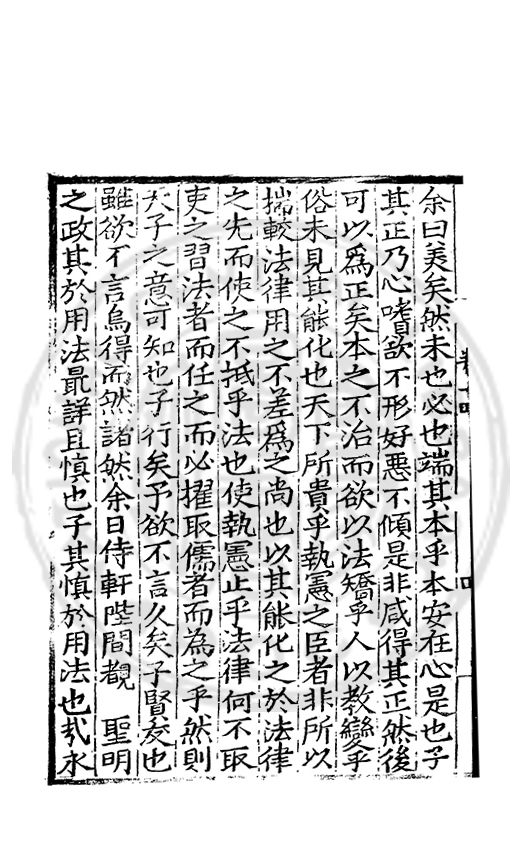 余曰美矣然未也必也端其本乎本安在心是也子
其正乃心嗜欲不形好惡不傾是非咸得其正然後
可以爲正矣本之不治而欲以法矯乎人以教變乎
俗未見其能化也天下所貴乎執憲之臣者非所以
揣較法律用之不差爲之尚也以其能化之於法律
之先而使之不抵乎法也使執憲止乎法律何不取
吏之習法者而任之而必擢取儒者而為之乎然則
天子之意可知也子行矣予欲不言久矣子賢友也
雖欲不言烏得而然諸然余日侍軒陛間覩 聖明
之政其於用法最詳且慎也子其慎於用法也哉永
卷十四
四